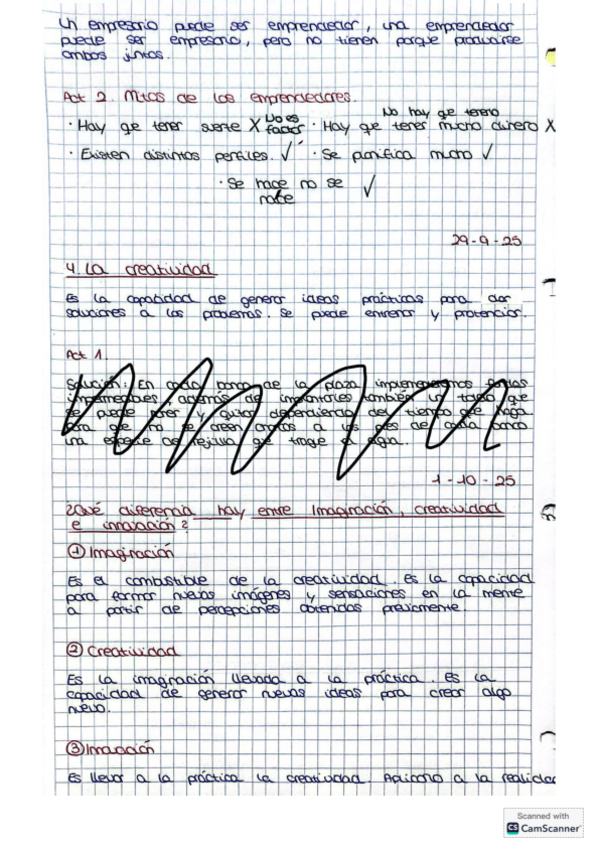 Un empresario puede ser emprendedor, una emprendedor
puede ser empresario, pero no tienen porque producirse
ambos juntos.
Act 2. Mitos de los emprendedores.
· Hay qe tener suerte X No es factor · Hay qe tener mucho dinero X No hay qe tenerlo
· Existen distintos perfiles. ✓ · Se planifica mucho ✓
· Se hace no se nace ✓
29-9-25
4. La creatividad
Es la capacidad de generar ideas prácticas para dar
soluciones a los problemas. Se puede entrenar y potenciar.
Act 1.
Solución: En cada banco de la plaza implementaremos
impermeables, además de también un toldo que
se puede poner y quitar dependiendo del tiempo que haga
para que no se creen charcos a los pies de cada banco
una especie de rejilla que trage el agua.
1-10-25
¿Qué diferencia hay entre Imaginación, creatividad
e innovación?
① Imaginación
Es el combustible de la creatividad. Es la capacidad
para formar nuevas imágenes y sensaciones en la mente
a partir de percepciones obtenidas previamente.
② Creatividad
Es la imaginación llevada a la práctica. Es la
capacidad de generar nuevas ideas para crear algo
nuevo.
③ Innovación
Es llevar a la práctica la creatividad. Aplicarlo a la realidad
Scanned with
CS CamScanner